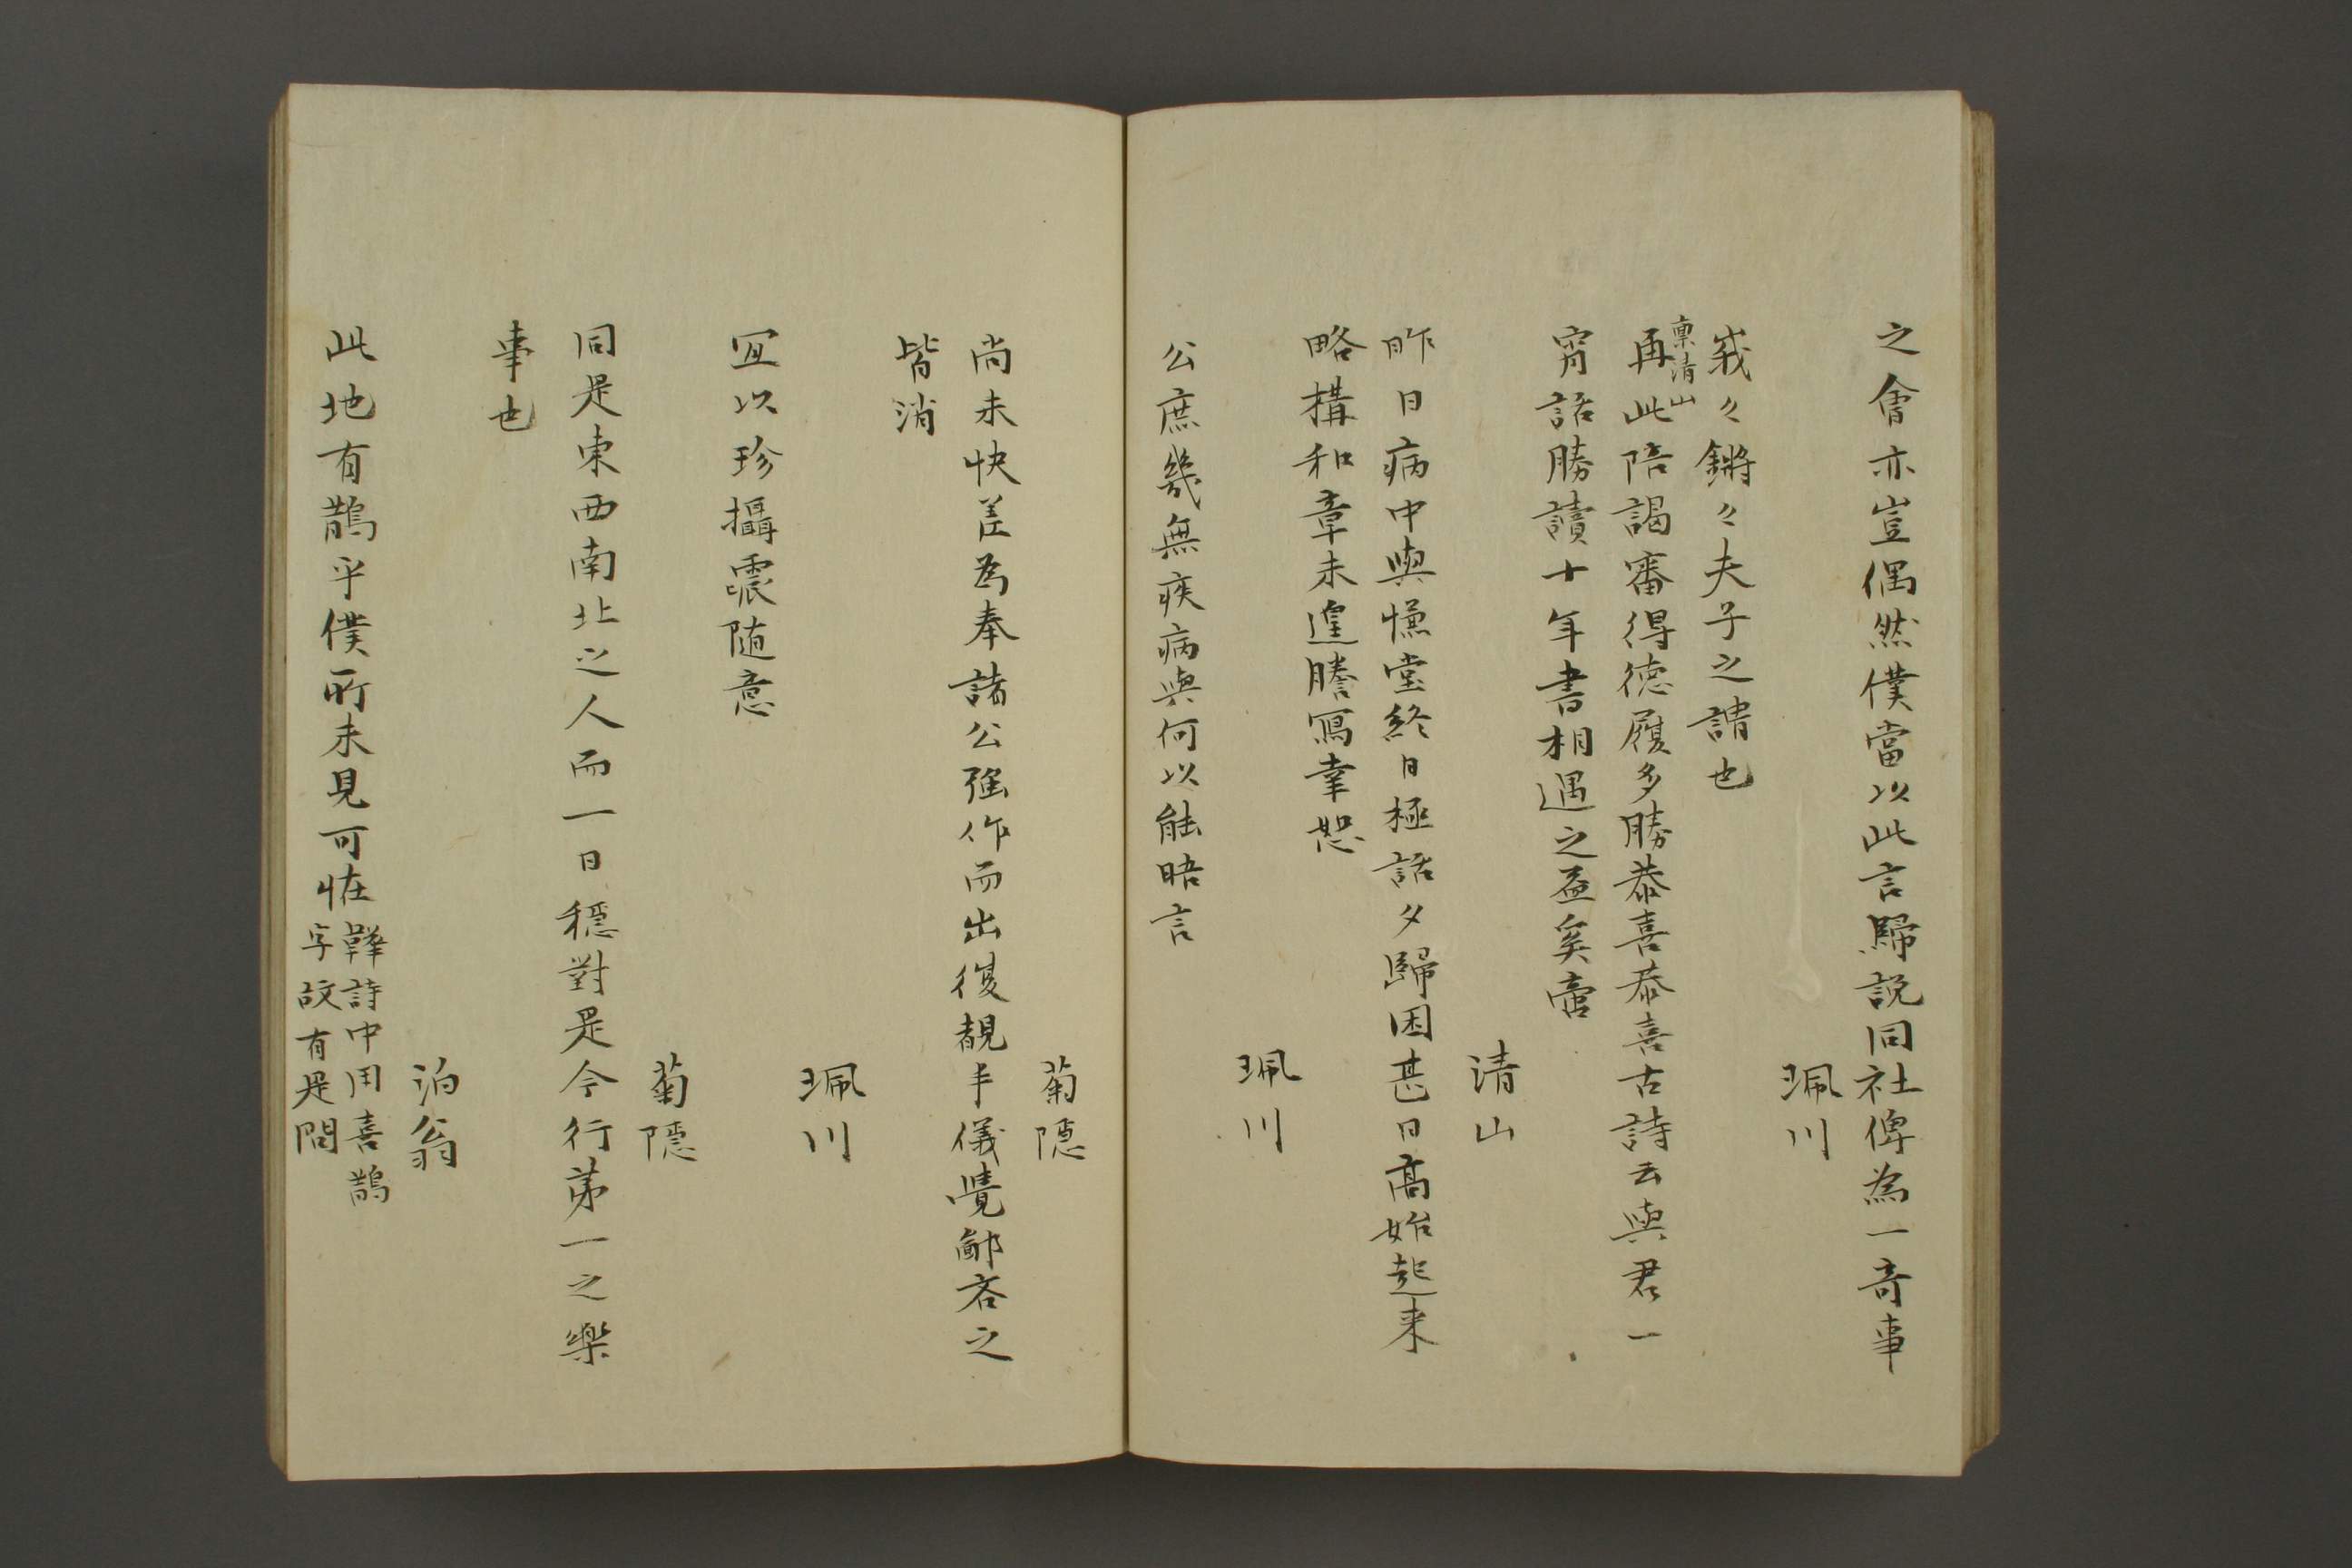 之會亦豈偶然僕當以此言歸説同社俾為一奇事
珮川
峩々鏘々夫子之謂也
稟清山
再此陪謁審得徳履多勝恭喜恭喜古詩云與君一
宵話勝讀十年書相遇之益奚啻
清山
昨日病中與慊堂終日極話夕歸困甚日高始起来
略構和章未遑謄寫幸恕
珮川
公庶幾無疾病與何以能晤言
菊隠
尚未快差為奉諸公強作而出復覩丰儀覺鄙吝之
皆消
珮川
宜以珍攝震随意
菊隠
同是東西南北之人而一日穩對是今行第一之樂
事也
泊翁
此地有鵲乎僕所未見可恠
韡詩中用喜鵲
字故有是問